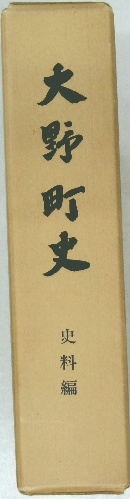 大野町史
史料編